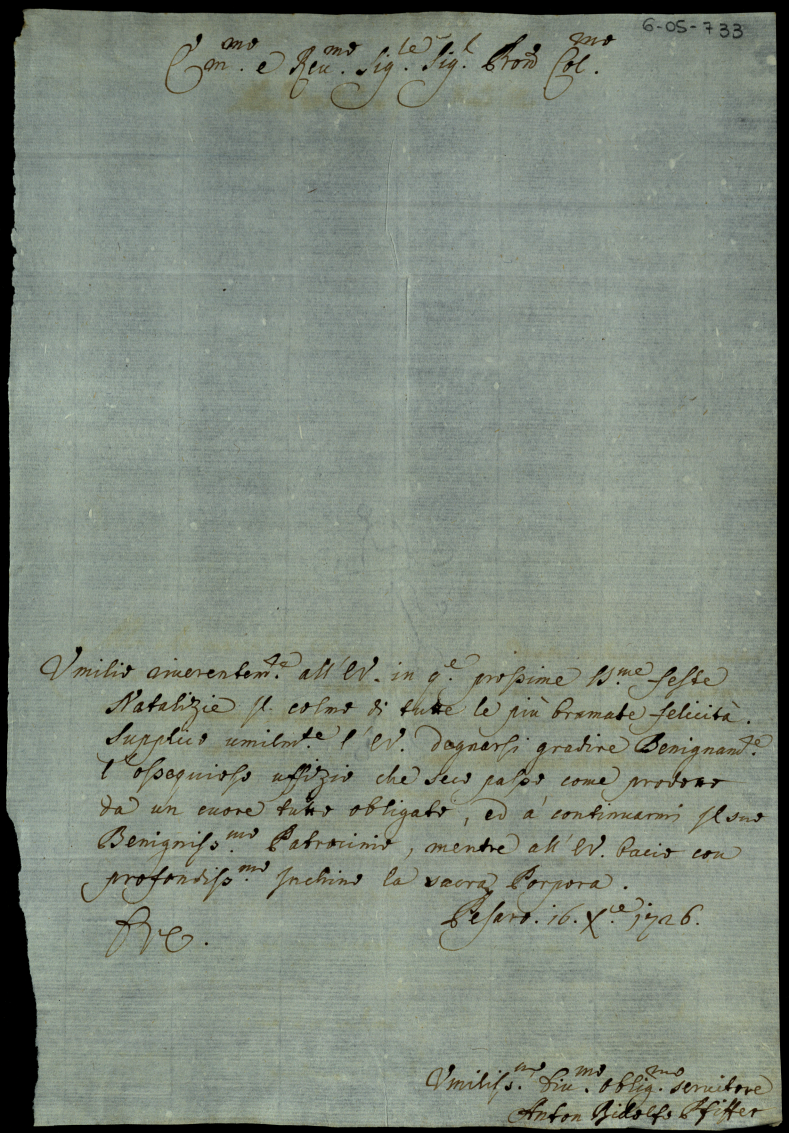 6-05-733
E^mo. e Reu^mo. Sig^re. Sig^r. Pron̄ Col^mo.
Vmilio riuerentem^te. all'EV. in q^e. prossime SS^me feste
Natalizie il colmo di tutte le più bramate felicità.
Supplico umilm^te. l'EV. degnarsi gradire Benignam^te.
l'ossequioso uffizio che seco passo come prodotto
da un cuore tutto obligato, ed à continuarmi il suo
Benigniss^mo Patrocinio, mentre all'EV. bacio con
profondiss^mo Inchino la sacra Porpora.
Pesaro. 16. X^re. 1726.
DVE.
Vmiliss^mo. Diu^mo. oblig^mo. seruitore
Anton Ridolfo Pfiffer